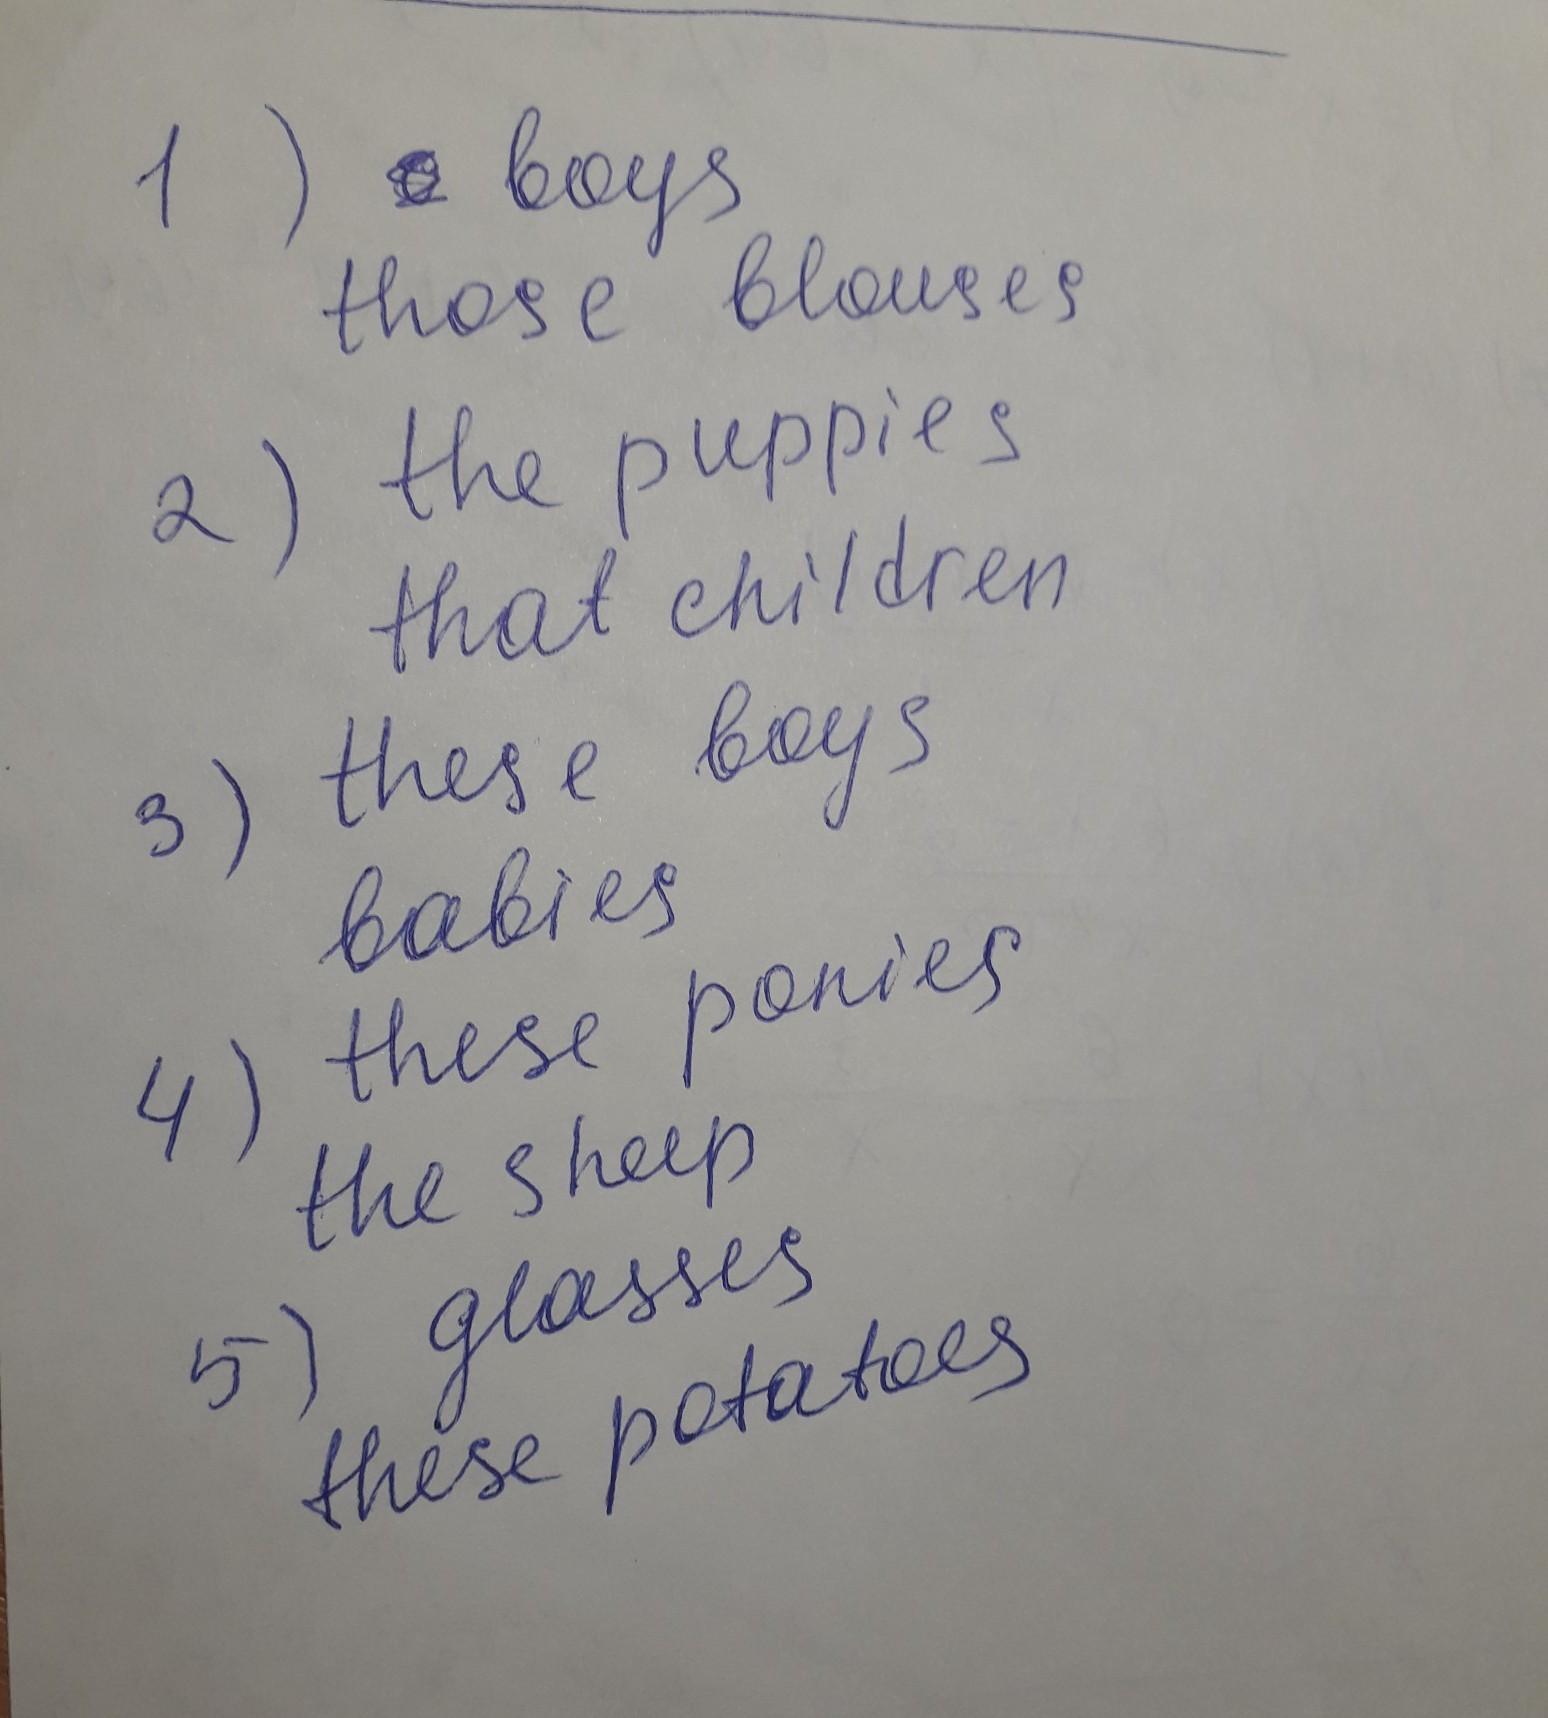 1) boys
those blouses
2) the puppies
that children
3) these boys
babies
4) these ponies
the sheep
5) glasses
these potatoes